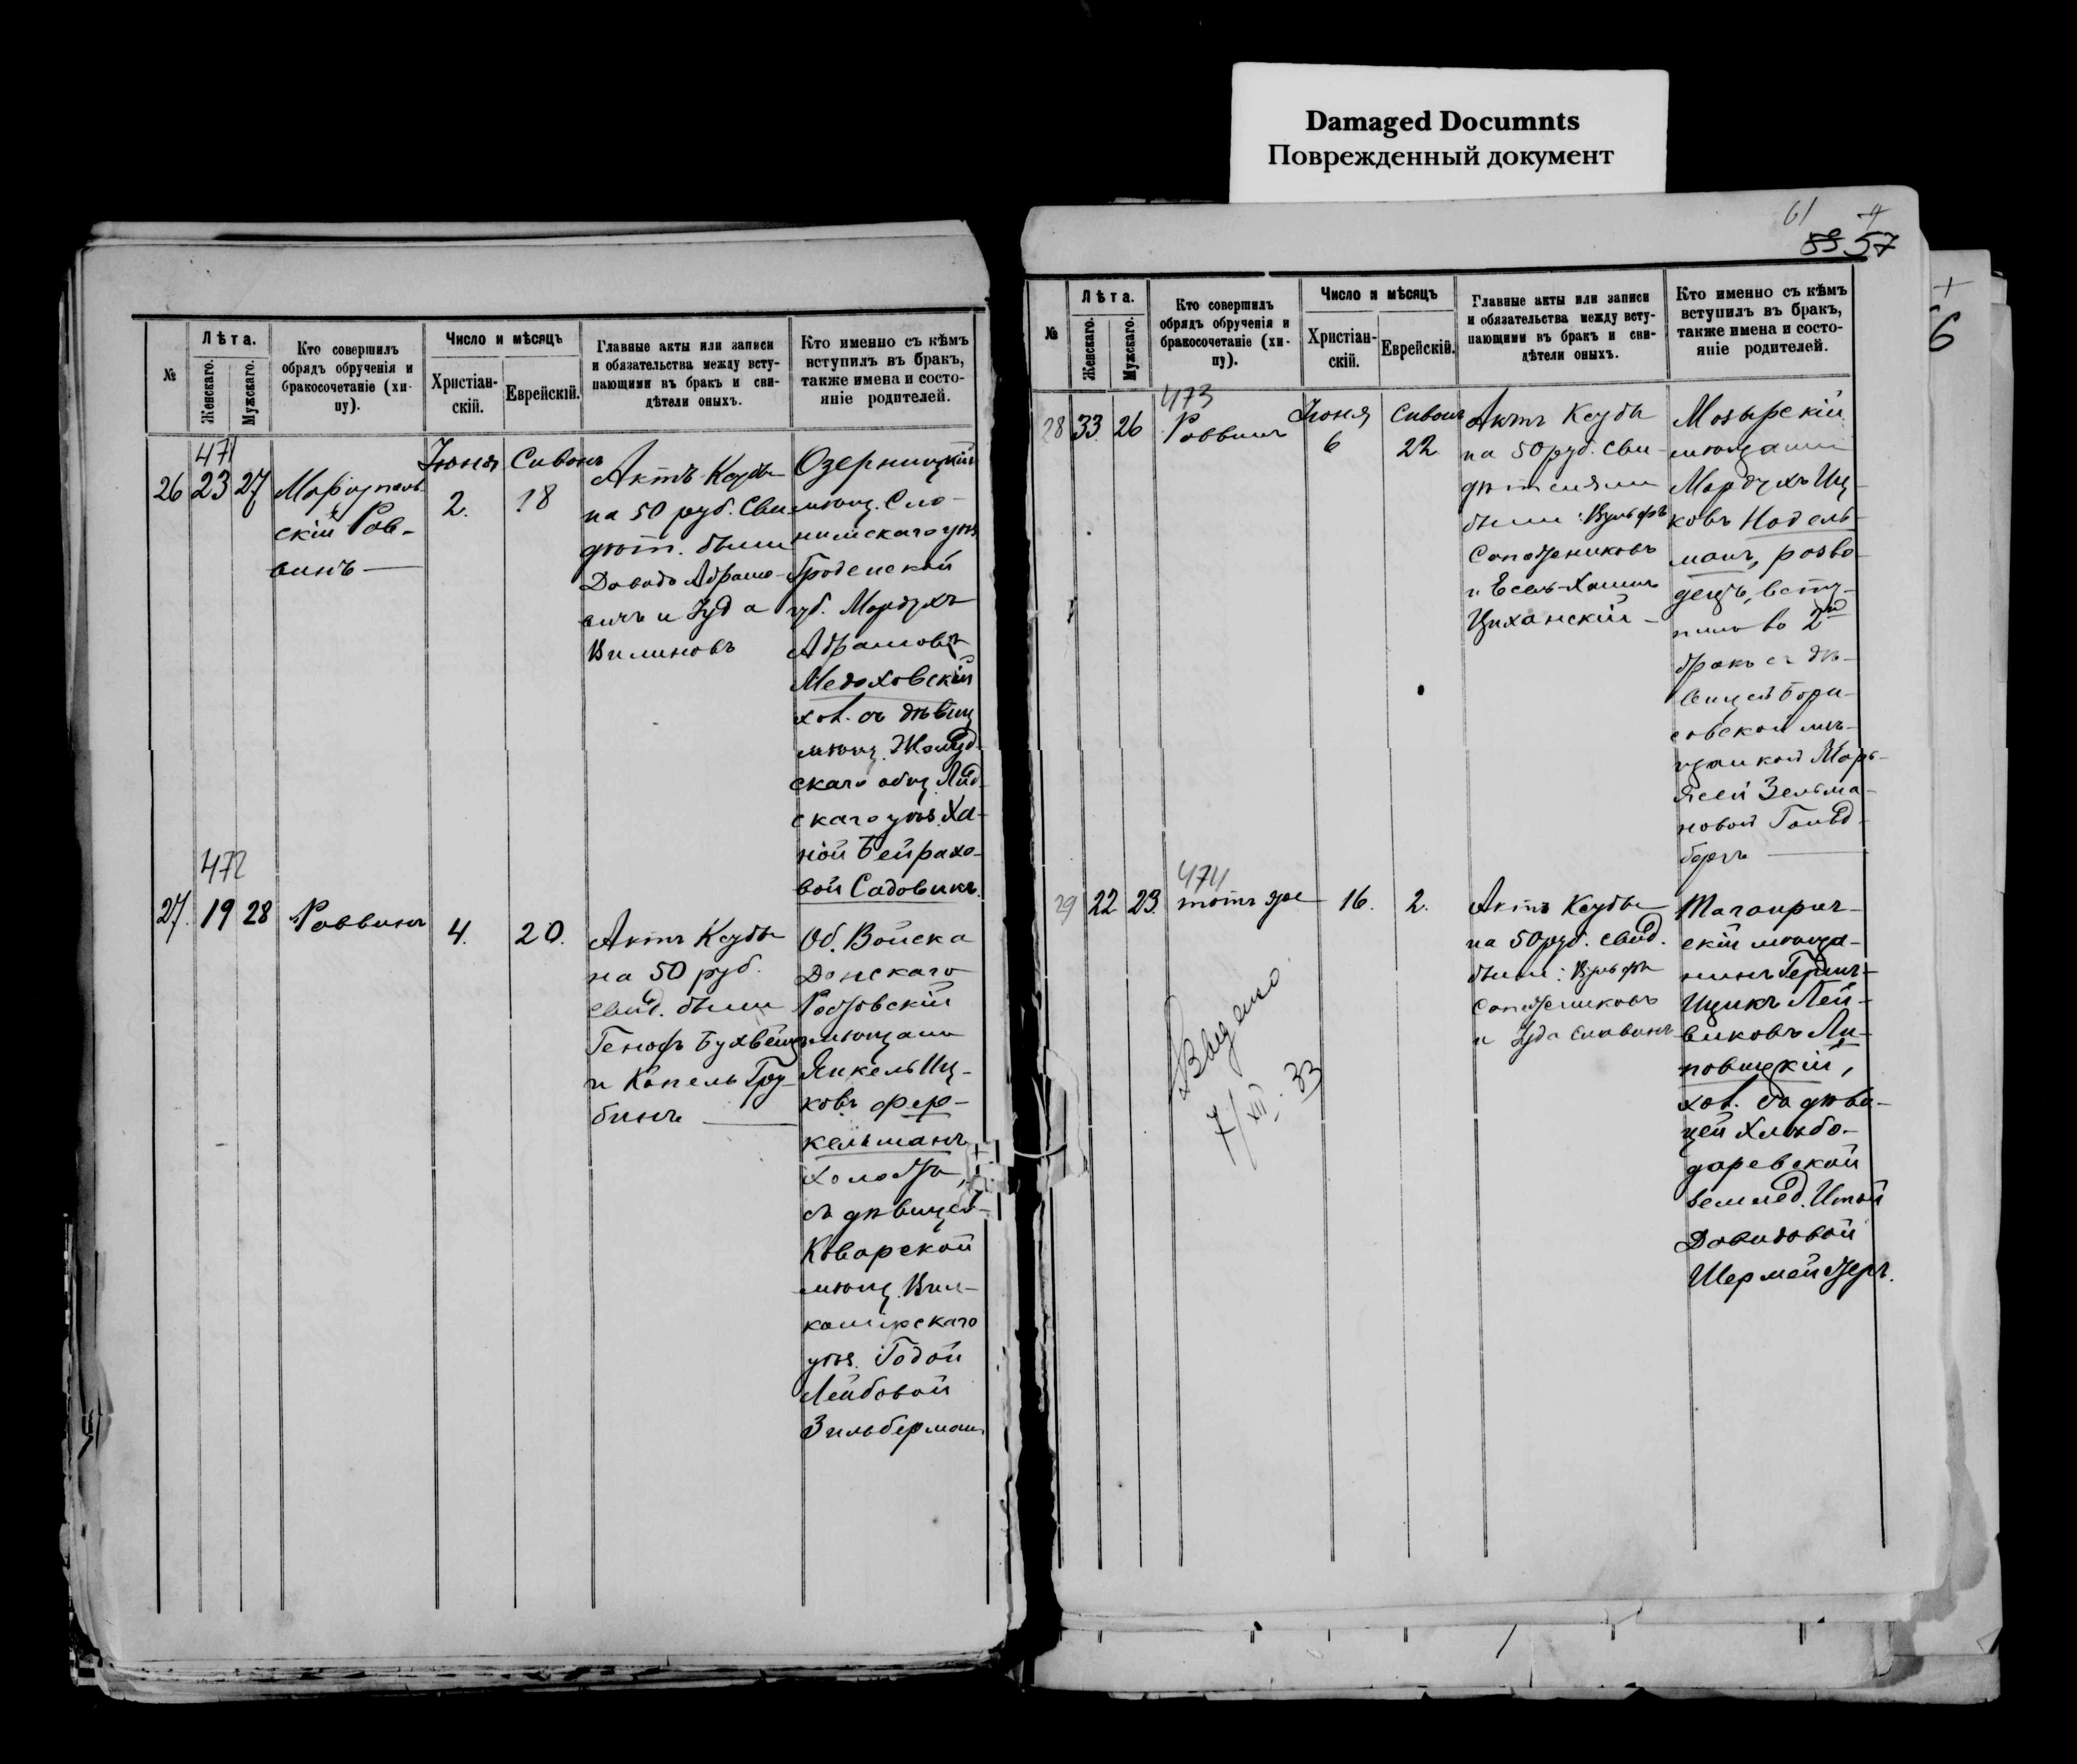 Damaged Documnts
Поврежденный документ
№
Лѣта.
Женскаго.
Мужскаго.
Кто совершилъ
обрядъ обрученія и
бракосочетаніе (хи-
пу).
Число и мѣсяцъ
Христіан-
скій.
Еврейскій.
Главные акты или записи
и обязательства между всту-
пающими въ бракъ и сви-
дѣтели оныхъ.
Кто именно съ кѣмъ
вступилъ въ бракъ,
также имена и состо-
яніе родителей.
471
26 23 27
Маріуполь
скій Рав-
винъ
Іюня
2.
Сивонъ
18
Актъ Ксубы
на 50 руб. Сви
дѣт. были
Давидъ Абрамо-
вичъ и Іуда
Вилиновъ
Озерницкій
мѣщ. Сло-
нимскаго уѣз
Гродненской
губ. Мордухъ
Абрамовъ
Медоховскій
хол. съ дѣвиц
мѣщ. Жолуд
скаго общ. Лид
скаго уѣз. Ха-
ной Бейрахо-
вой Садовикъ.
472
27. 19 28
Раввинъ
4.
20.
Актъ Ксубы
на 50 руб.
свид. были
Генохъ
и Копель Гру
бинъ
Об. Войска
Донскаго
Ростовскій
мѣщанин
Янкель Иц-
ковъ Фер-
кельманъ
холостъ,
съ дѣвицей
Коварской
мѣщ. Вил-
комирскаго
уѣз. Годой
Лейбовой
Зильберман
61
59 57
6
№
Лѣта.
Женскаго.
Мужскаго.
Кто совершилъ
обрядъ обрученія и
бракосочетаніе (хи-
пу).
Число и мѣсяцъ
Христіан-
скій.
Еврейскій.
Главные акты или записи
и обязательства между всту-
пающими въ бракъ и сви-
дѣтели оныхъ.
Кто именно съ кѣмъ
вступилъ въ бракъ,
также имена и состо-
яніе родителей.
473
28 33 26
Раввинъ
Іюня
6
Сивонъ
22
Актъ Ксубы
на 50 руб. Сви-
дѣтелями
были: Вульфъ
Сапожниковъ
и Есель-Хаимъ
Циханскій
Мозырскій
мѣщанин
Мордухъ Иц-
ковъ Нодель-
манъ, разво-
децъ, всту-
пилъ во 2й
бракъ съ дѣ-
вицей Бори-
совской мѣ-
щанкой Марь-
ясей Зельма-
новой Гольд-
бергъ
474
29 22 23.
тотъ же
16.
2.
Актъ Ксубы
на 50 руб. свид.
были: Вульфъ
Сапожниковъ
и Іуда Славинъ
Таганрог-
скій мѣща-
нинъ
Ицикъ Лей-
виковъ Ли-
повицкій,
хол. съ дѣви-
цей Хлѣбо-
даревской
землед. Итой
Давидовой
Шермейстеръ.
Выдано
7/XII.33